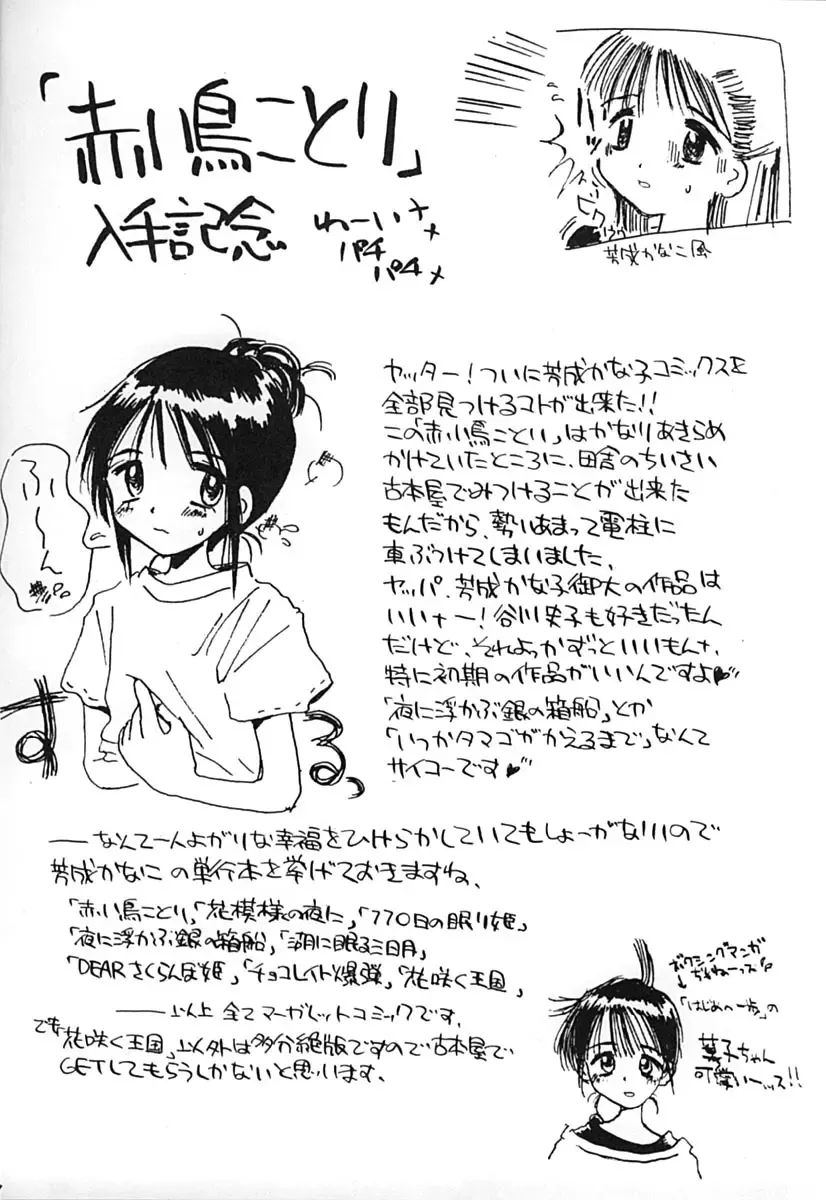 「赤い鳥ことり」
入手記念
わーい
パチ
パチ
芳成かなこ風
ヤッター!ついに芳成かな子コミックスを
全部見つけるコトが出来た!!
この「赤い鳥ことり」はかなりあきらめ
かけていたところに、田舎のちいさい
古本屋でみつけることが出来た
もんだから、勢いあまって電柱に
車ぶつけてしまいました。
ヤッパ、芳成かな子御大の作品は
いいナー!谷川史子も好きだったん
だけど、それよっかずっといいもんナ。
特に初期の作品がいいんですよ♥
「夜に浮かぶ銀の箱船」とか
「いつかタマゴがかえるまで」なんて
サイコーです♥
ふ〜ん
する。
――なんて一人よがりな幸福をひけらかしていてもしょーがないので
芳成かなこの単行本を挙げておきますね、
「赤い鳥ことり」「花模様の夜に」「770日の眠り姫」
「夜に浮かぶ銀の箱船」「湖に眠る三日月」
「DEARさくらんぼ姫」「チョコレイト爆弾」「花咲く王国」
――以上全てマーガレットコミックです。
でも「花咲く王国」以外は多分絶版ですので古本屋で
GETしてもらうしかないと思います、
ボクシングマンガ
「はじめの一歩」の
菓子ちゃん
可愛いーッス!!